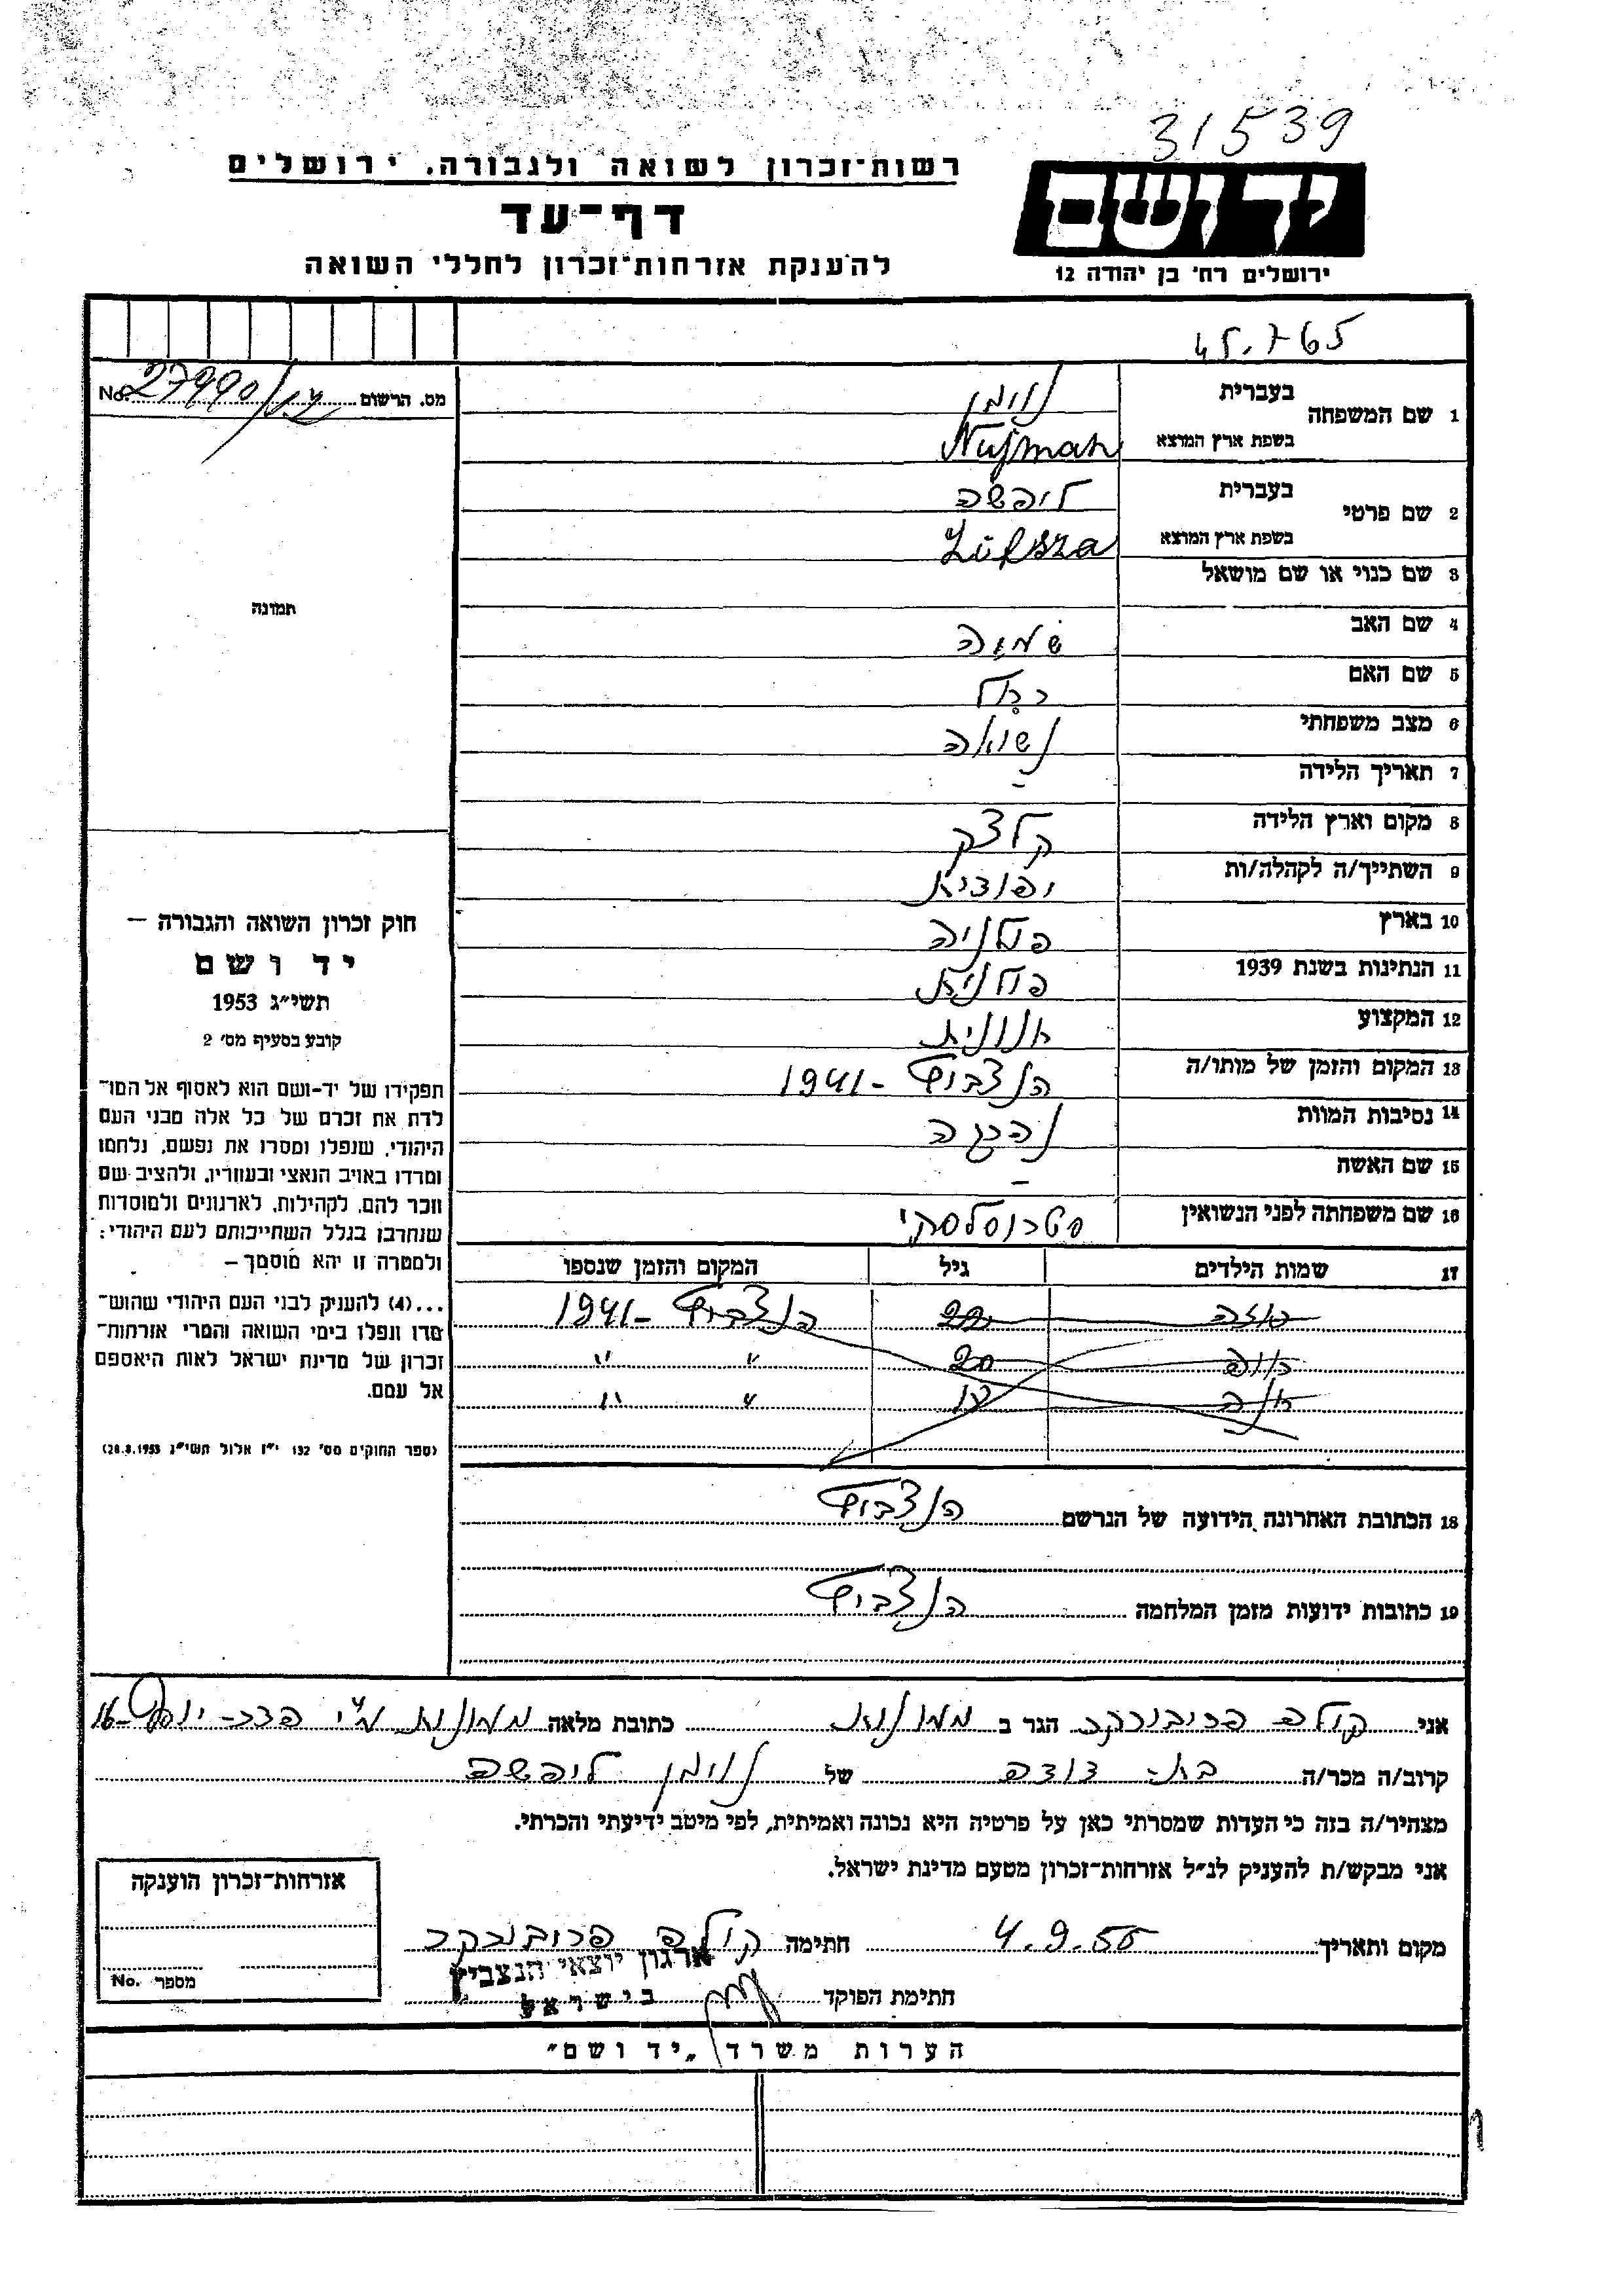 31539
רשות־זכרון לשואה ולגבורה. ירושלים
דף־עד
להענקת אזרחות־זכרון לחללי השואה
יד ושם
ירושלים רח' בן יהודה 12
מס. הרשום No. 27990/
1 שם המשפחה
בעברית נוימן
בשפת ארץ המוצא Nujman
2 שם פרטי
בעברית ליפשה
בשפת ארץ המוצא Lüfsza
3 שם כנוי או שם מושאל
4 שם האב
5 שם האם
6 מצב משפחתי נשואה
7 תאריך הלידה -
8 מקום וארץ הלידה קלצק
9 השתייך/ה לקהלה/ות
10 בארץ פולניה
11 הנתינות בשנת 1939 פולנית
12 המקצוע
13 המקום והזמן של מותו/ה הנצביץ - 1941
14 נסיבות המוות נהרגה
15 שם האשה -
16 שם משפחתה לפני הנשואין
17 שמות הילדים גיל המקום והזמן שנספו
הנצביץ - 1941
20 " "
" "
18 הכתובת האחרונה הידועה של הנרשם הנצביץ
19 כתובות ידועות מזמן המלחמה הנצביץ
תמונה
חוק זכרון השואה והגבורה –
יד ושם
תשי״ג 1953
קובע בסעיף מס' 2
תפקידו של יד-ושם הוא לאסוף אל המו־
לדת את זכרם של כל אלה מבני העם
היהודי, שנפלו ומסרו את נפשם, נלחמו
ומרדו באויב הנאצי ובעוזריו, ולהציב שם
וזכר להם, לקהילות, לארגונים ולמוסדות
שנחרבו בגלל השתייכותם לעם היהודי:
ולמטרה זו יהא מוסמך –
...(4) להעניק לבני העם היהודי שהוש־
מדו ונפלו בימי השואה והמרי אזרחות־
זכרון של מדינת ישראל לאות היאספם
אל עמם.
(ספר החוקים מס' 132 י״ז אלול תשי״ג 28.8.1953)
אני הגר ב כתובת מלאה
קרוב/ה מכר/ה בת דודה של נוימן ליפשה
מצהיר/ה בזה כי העדות שמסרתי כאן על פרטיה היא נכונה ואמיתית, לפי מיטב ידיעתי והכרתי.
אני מבקש/ת להעניק לנ״ל אזרחות־זכרון מטעם מדינת ישראל.
מקום ותאריך 4.9.55 חתימה
ארגון יוצאי הנצביץ
בישראל
חתימת הפוקד
אזרחות־זכרון הוענקה
מספר No.
הערות משרד „יד ושם״